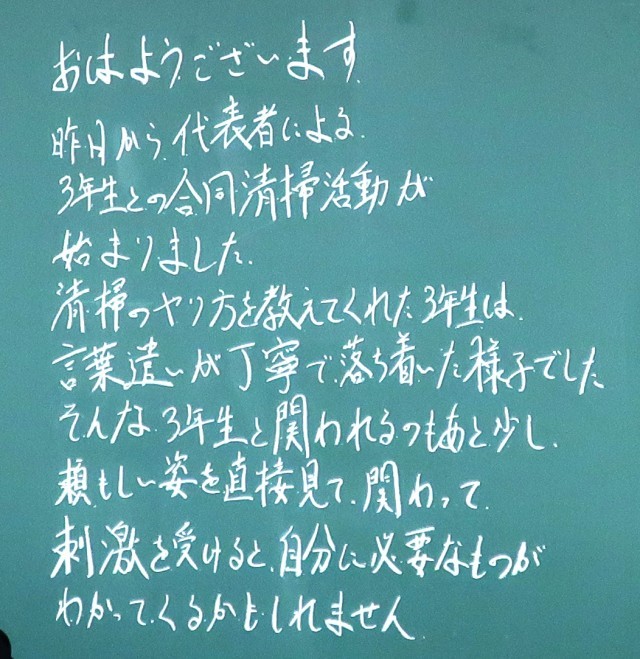 おはようございます.
昨日から、代表者による
3年生との合同清掃活動が
始まりました.
清掃のヤリ方を教えてくれた3年生は、
言葉遣いが丁寧で、落ち着いた様子でした
そんな3年生と関われるのもあと少し.
頼もしい姿を直接見て、関わって、
刺激を受けると、自分に必要なものが
わかってくるかもしれません.